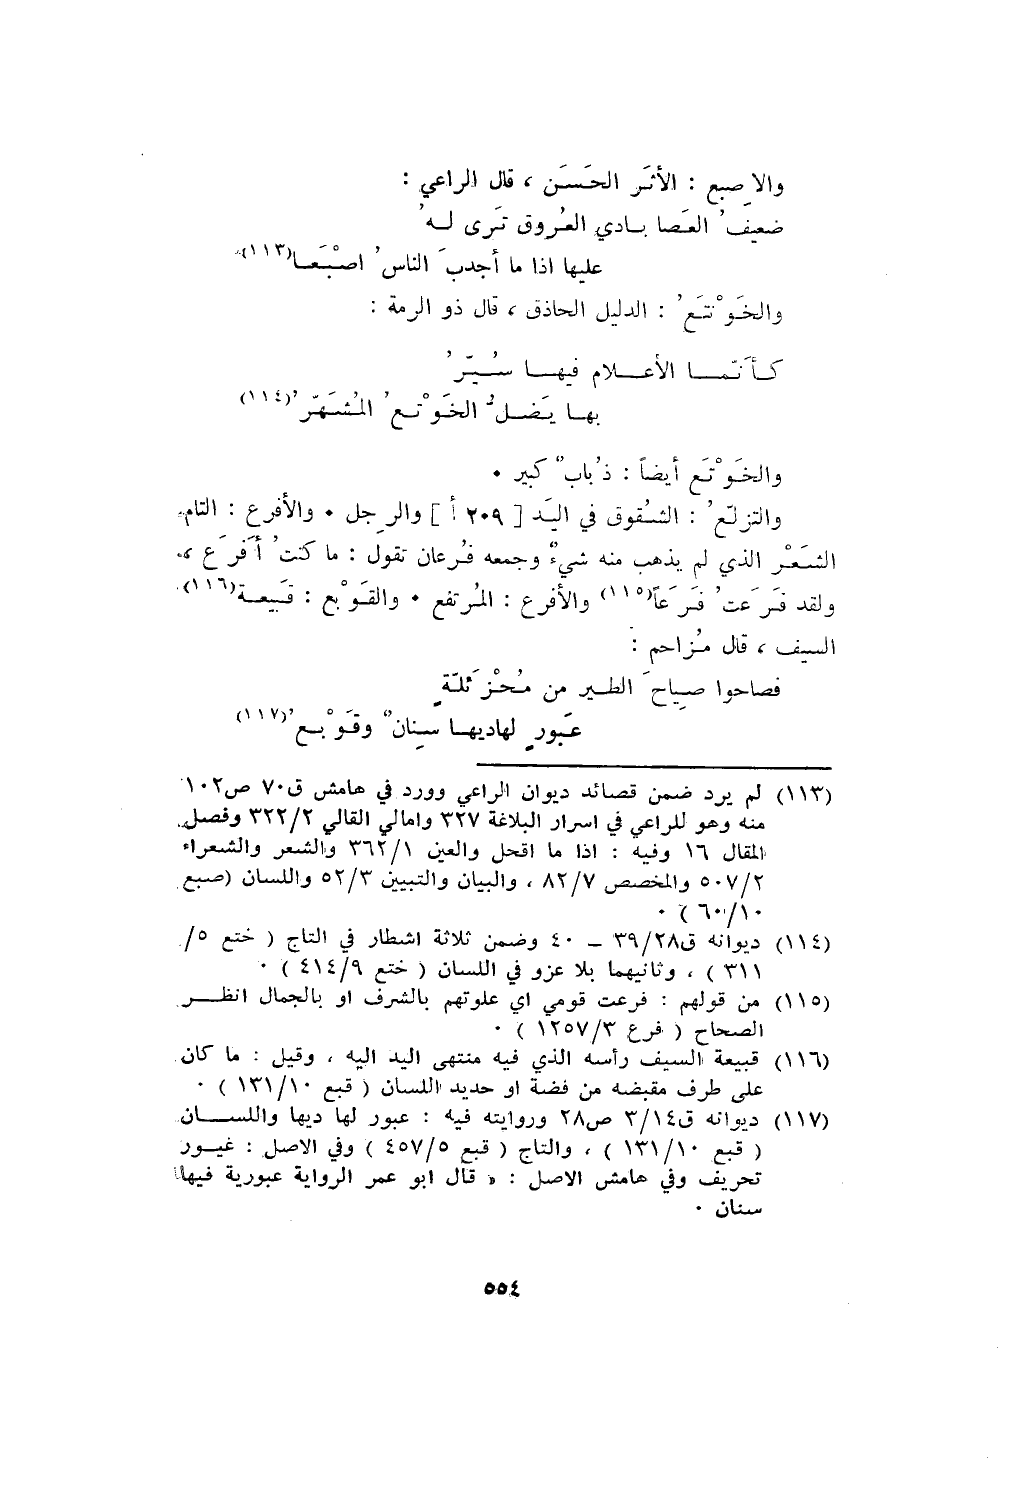 والاِصبع : الأثَر الحَسَن ، قال الراعي :
ضعيفُ العَصا بادي العُروق تَرى لهُ
عليها اذا ما أجدبَ الناسُ اصْبَعا(١١٣)
والخَوْتَعُ : الدليل الحاذق ، قال ذو الرمة :
كأنّما الأعلام فيها سُيّرُ
بها يَضلُّ الخَوْتعُ المُشهّرُ(١١٤)
والخَوْتَع أيضاً : ذُبابٌ كبير ٠
والتزلّعُ : الشُقوق في اليَد [ ٢٠٩ أ ] والرِجل ٠ والأفرع : التام
الشَعْر الذي لم يذهب منه شيءٌ وجمعه فُرعان تقول : ما كنتُ أفرَعَ ،
ولقد فَرَعتُ فَرَعاً(١١٥) والأفرع : المُرتفع ٠ والقَوْبع : قَبيعة(١١٦)
السيف ، قال مُزاحم :
فصاحوا صِياحَ الطير من مُحْزَئلّةٍ
عَبورٍ لهاديها سِنانٌ وقَوْبعُ(١١٧)
(١١٣) لم يرد ضمن قصائد ديوان الراعي وورد في هامش ق٧٠ ص١٠٢
منه وهو للراعي في اسرار البلاغة ٣٢٧ وامالي القالي ٣٢٢/٢ وفصل
المقال ١٦ وفيه : اذا ما اقحل والعين ٣٦٢/١ والشعر والشعراء
٥٠٧/٢ والمخصص ٨٢/٧ ، والبيان والتبيين ٥٢/٣ واللسان (صبع
٦٠/١٠ ) ٠
(١١٤) ديوانه ق٣٩/٢٨ – ٤٠ وضمن ثلاثة اشطار في التاج ( ختع ٥/
٣١١ ) ، وثانيهما بلا عزو في اللسان ( ختع ٤١٤/٩ ) ٠
(١١٥) من قولهم : فرعت قومي اي علوتهم بالشرف او بالجمال انظر
الصحاح ( فرع ١٢٥٧/٣ ) ٠
(١١٦) قبيعة السيف رأسه الذي فيه منتهى اليد اليه ، وقيل : ما كان
على طرف مقبضه من فضة او حديد اللسان ( قبع ١٣١/١٠ ) ٠
(١١٧) ديوانه ق٣/١٤ ص٢٨ وروايته فيه : عبور لها ديها واللسان
( قبع ١٣١/١٠ ) ، والتاج ( قبع ٤٥٧/٥ ) وفي الاصل : غيور
تحريف وفي هامش الاصل : « قال ابو عمر الرواية عبورية فيها
سنان ٠
٥٥٤